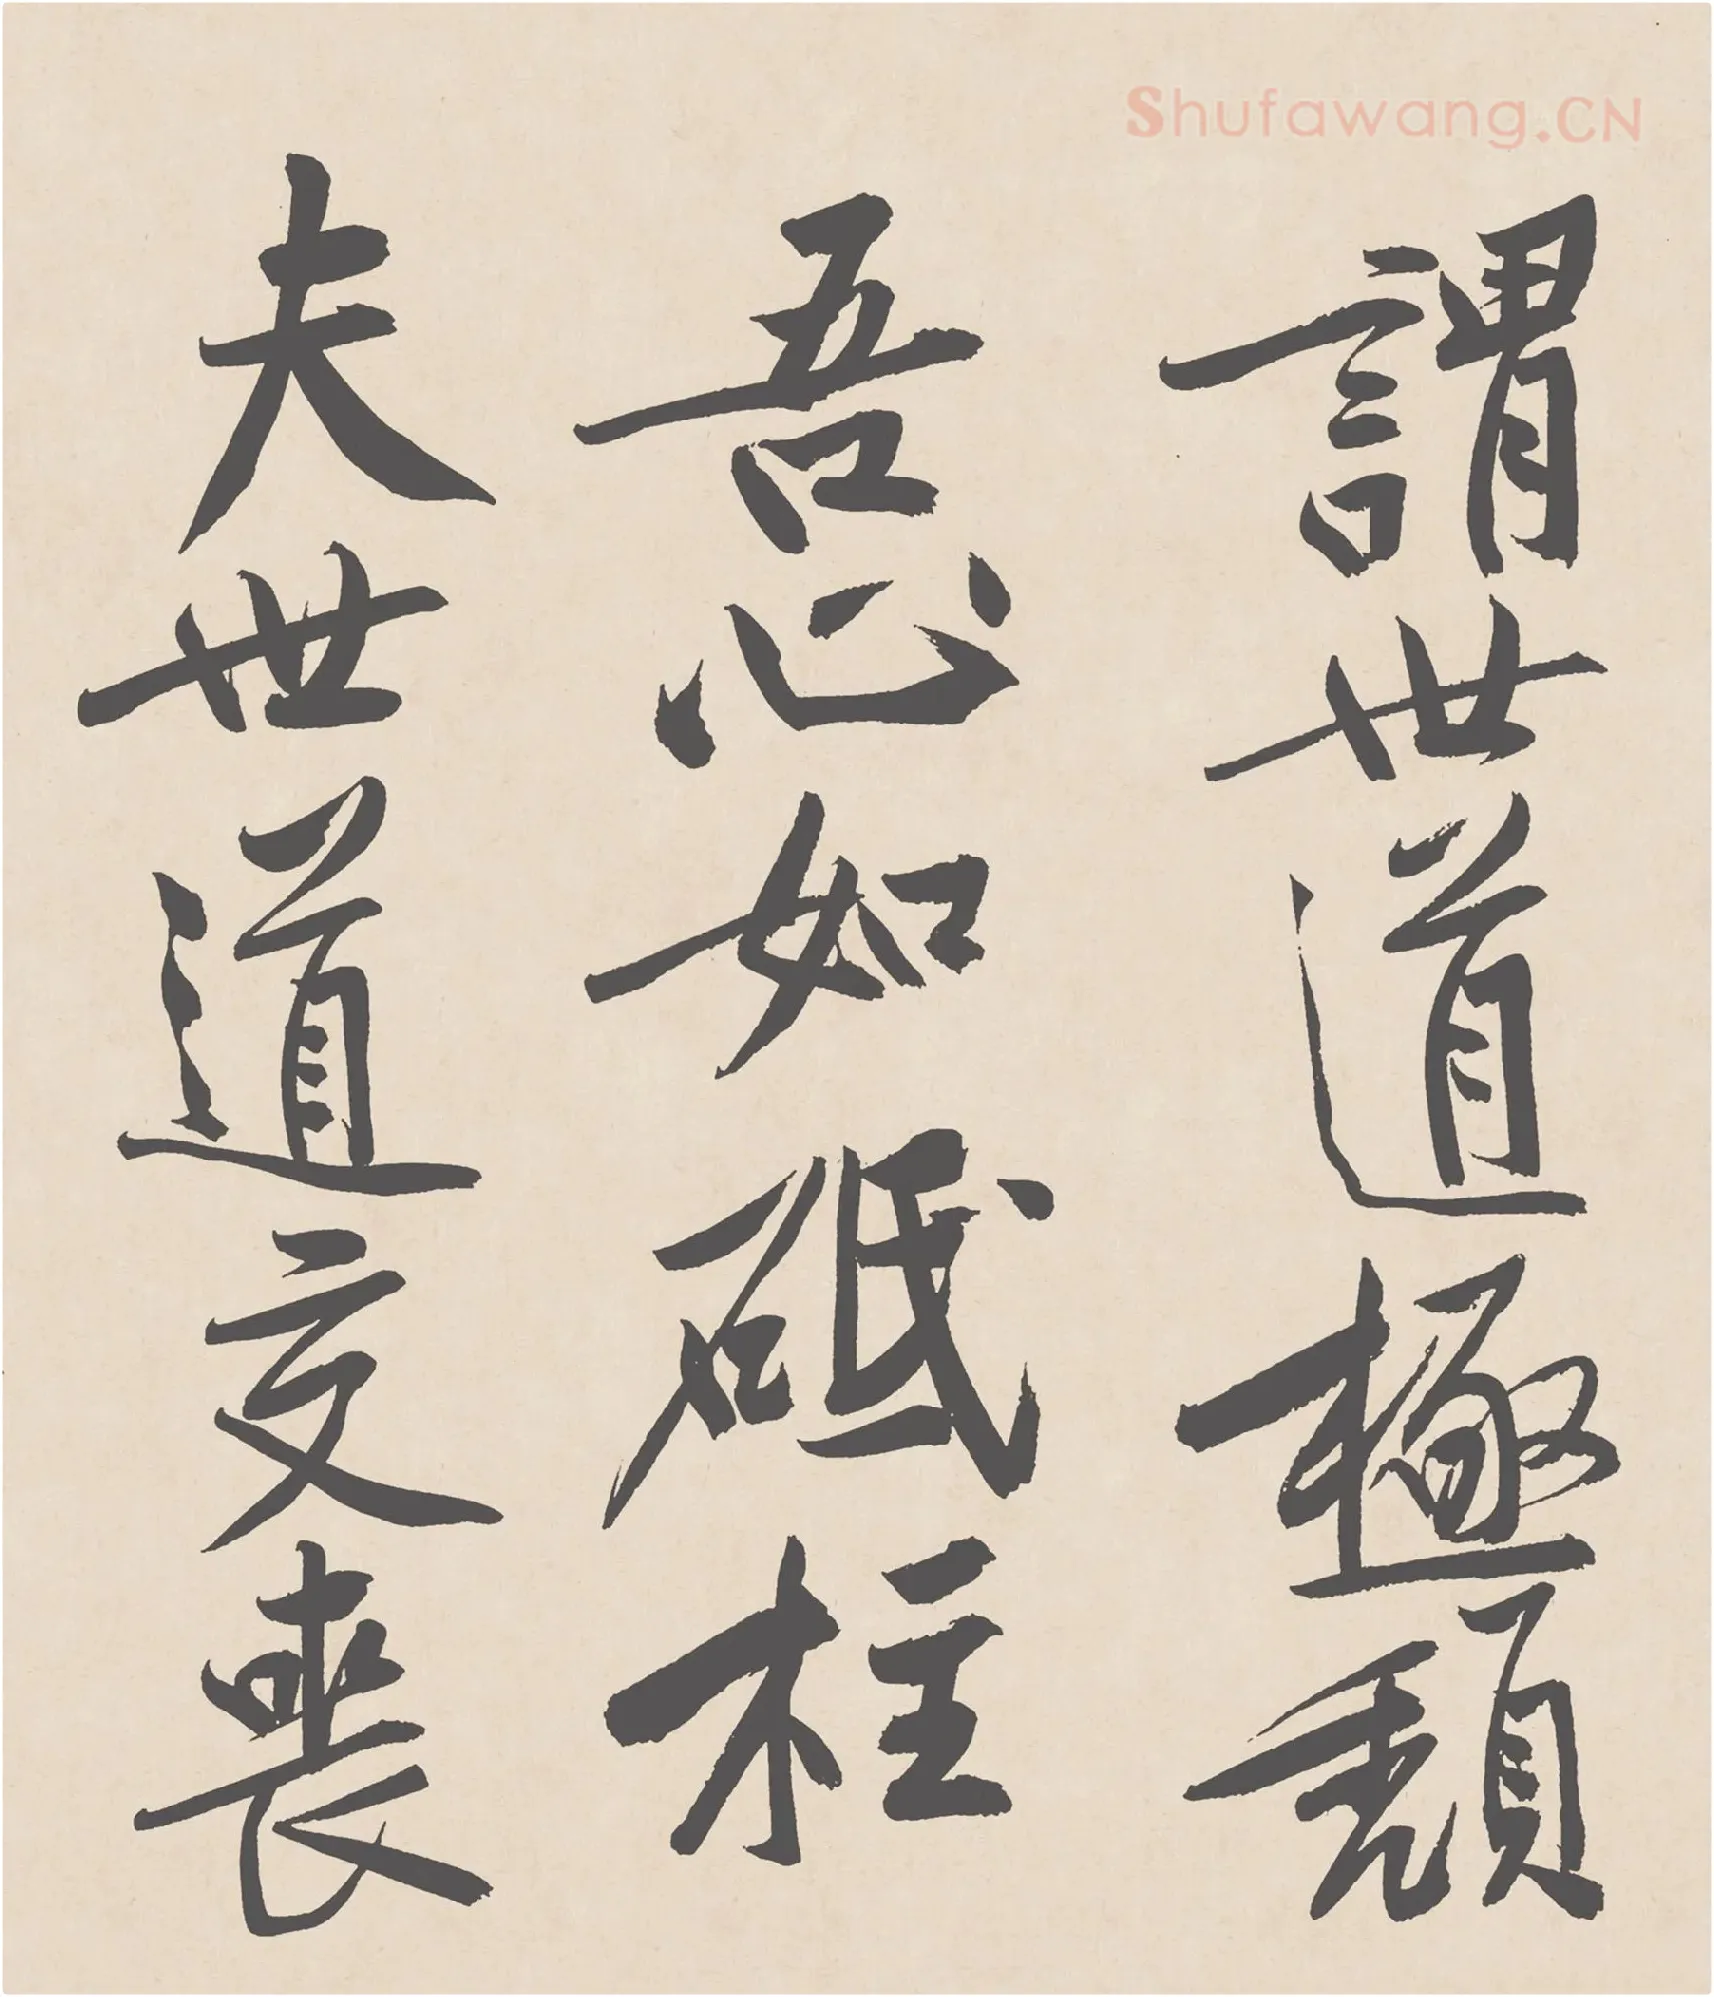 Shufawang.CN
謂世道極頹
吾心如砥柱
夫世道交喪